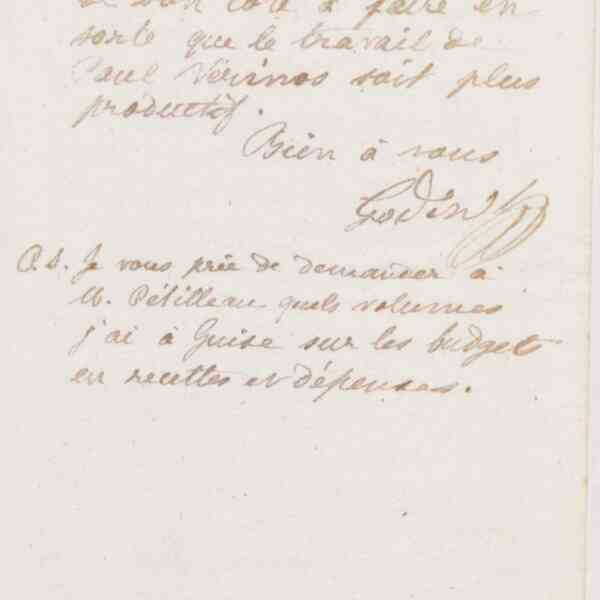 de son côté à faire en
sorte que le travail de
Paul Vérinos soit plus
productif.
Bien à vous
Godin
P.S. Je vous prie de demander à
M. Pétilleau quels volumes
j'ai à Guise sur les budgets
en recettes et dépenses.